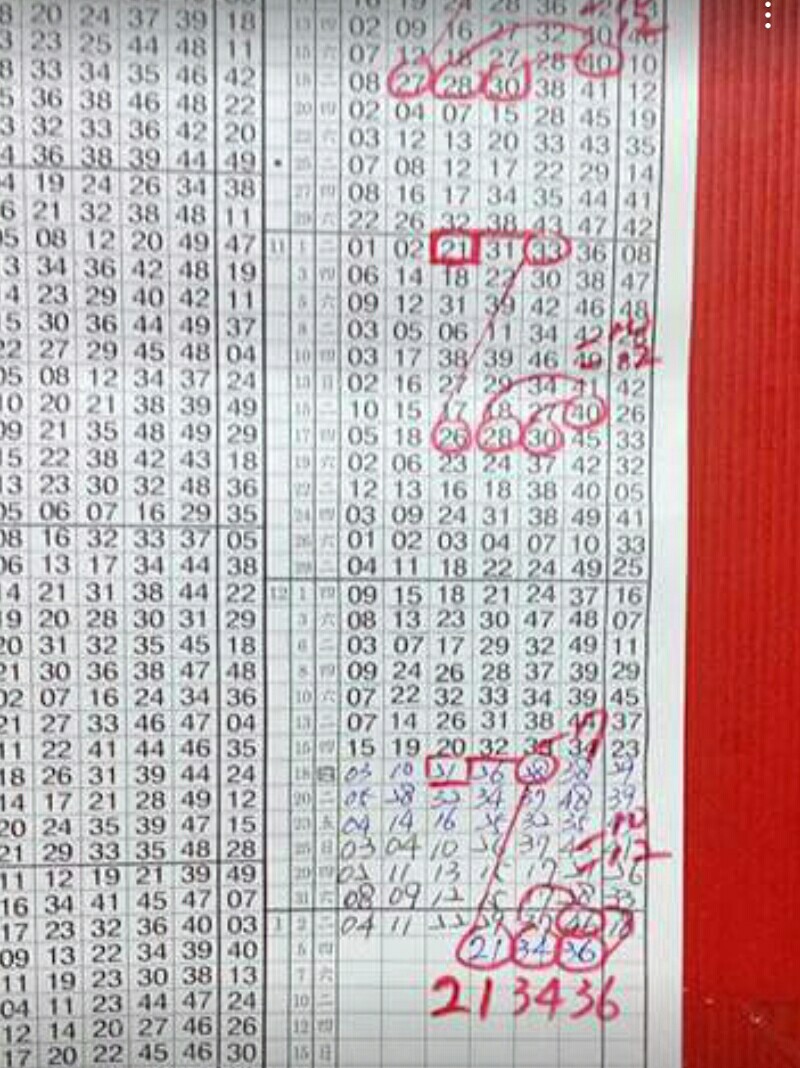 8 20 24 37 39 18
3 23 25 44 48 11 13 四 02 09 16 27 32 40
8 33 34 35 46 42 15 六 07 12 18 27 28 40 10
5 36 38 46 48 22 18 二 08 27 28 30 38 41 12
3 32 33 36 42 20 20 四 02 04 07 15 28 45 19
4 36 38 39 44 49 22 六 03 12 13 20 33 43 35
4 19 24 26 34 38 25 二 07 08 12 17 22 29 14
6 21 32 38 48 11 27 四 08 16 17 34 35 44 41
29 六 22 26 32 38 43 47 42
05 08 12 20 49 47 11 1 二 01 02 21 31 33 36 08
3 34 36 42 48 19 3 四 06 14 18 22 30 38 47
4 23 29 40 42 11 5 六 09 12 31 39 42 46 48
15 30 36 44 49 37 8 二 03 05 06 11 34 42
22 27 29 45 48 04 10 四 03 17 38 39 46 49
05 08 12 34 37 24 13 日 02 16 27 29 34 41 42
10 20 21 38 39 49 15 二 10 15 17 18 27 40 26
09 21 35 48 49 29 17 四 05 18 26 28 30 45 33
15 22 38 42 43 18 19 六 02 06 23 24 37 42 32
13 23 30 32 48 36 22 二 12 13 16 18 38 40 05
05 06 07 16 29 35 24 四 03 09 24 31 38 49 41
08 16 32 33 37 05 26 六 01 02 03 04 07 10 33
06 13 17 34 44 38 29 二 04 11 18 22 24 49 25
14 21 31 38 44 22 12 1 四 09 15 18 21 24 37 16
19 20 28 30 31 29 3 六 08 13 23 30 47 48 07
20 31 32 35 45 18 6 二 03 07 17 29 32 49 11
21 30 36 38 47 48 8 四 09 24 26 28 37 39 29
02 07 16 24 34 36 10 六 07 22 32 33 34 39 45
21 27 33 46 47 04 13 二 07 14 26 31 38 44 37
11 22 41 44 46 35 15 四 15 19 20 32 33 34 23
18 26 31 39 44 24 18 日 03 10 21 26 38
14 17 21 28 49 12 20 二 34 48 39
20 24 35 39 47 15 04 14 16
21 29 33 35 48 28 日 03 04 10 37
11 12 19 21 39 49 四 11 13 17
16 34 41 45 47 07 31 六 08 09 12
17 23 32 36 40 03 1 2 二 04 11 22
09 13 22 34 39 40 5 四 21 34 36
11 19 23 30 38 13 7 六
04 11 23 44 47 24 10 二 21 34 36
12 14 20 27 46 26 12 四
17 20 22 45 46 30 15 日